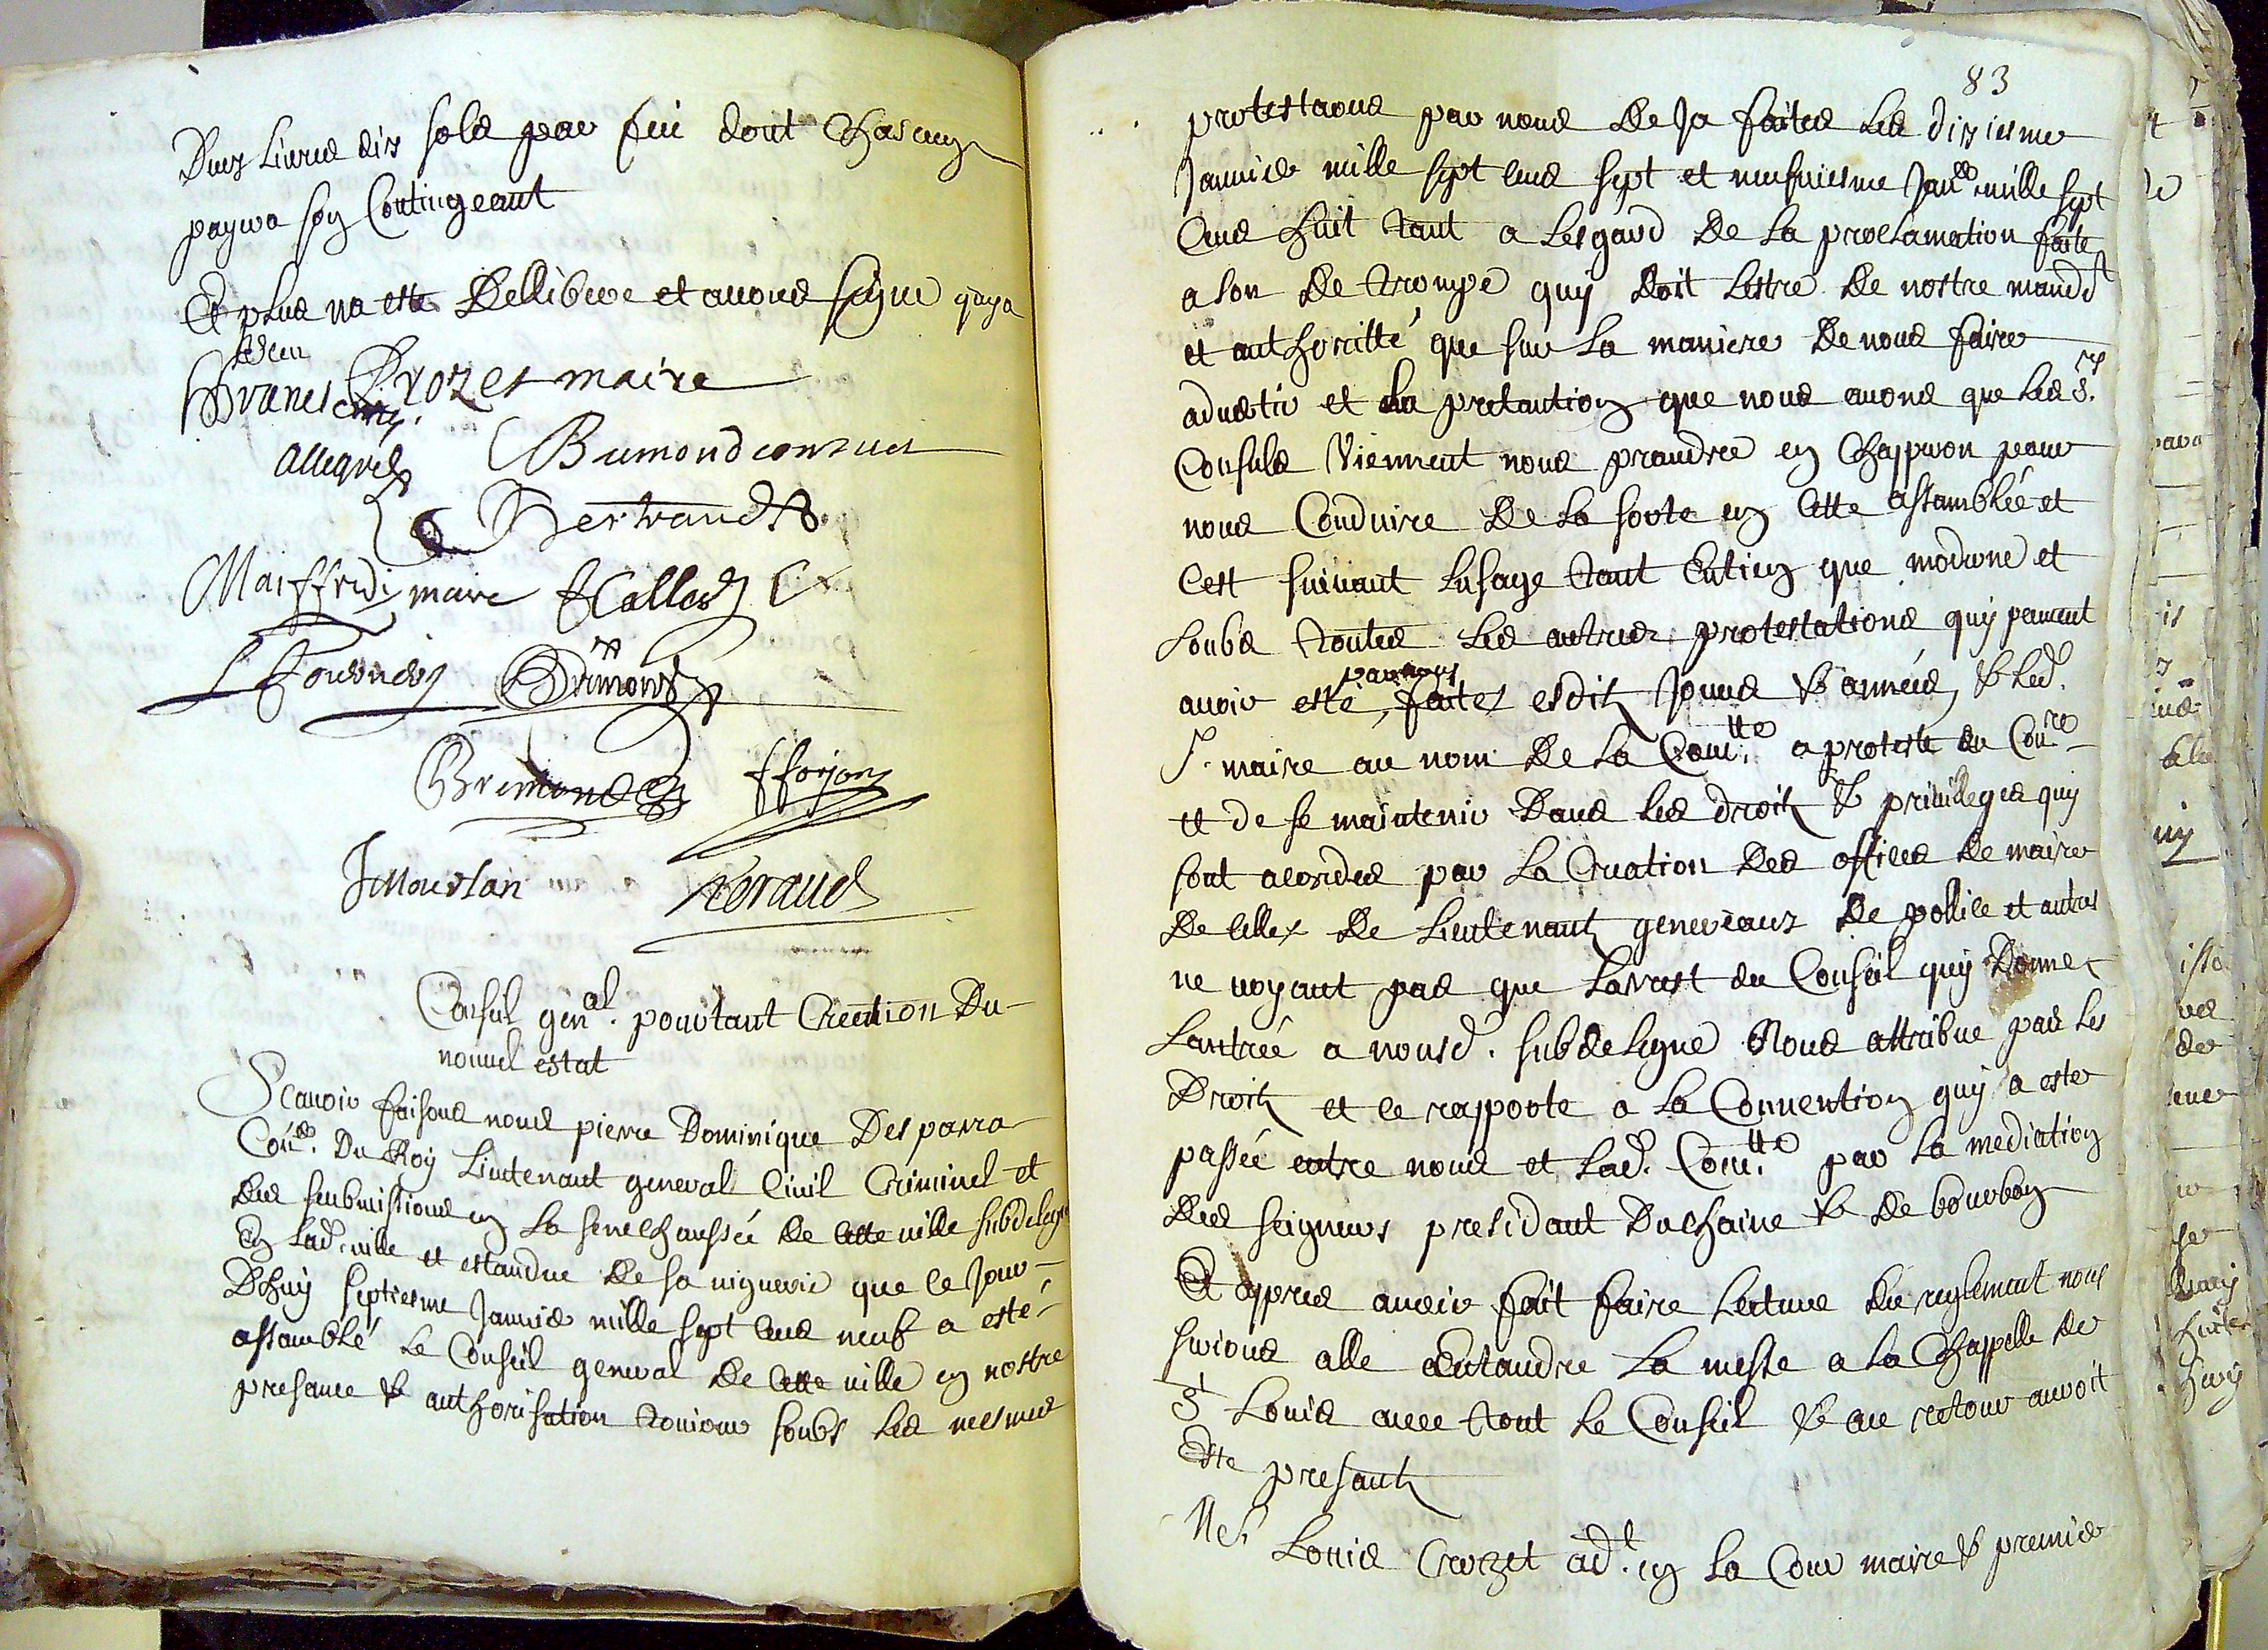 Deux Livres dix sols par feu dont Chascung
payera song Contingeant
Et plus na este Dellibere et avons signe quy a
sceu
Branes Crozet maire
Allegre Bremond consul
Bertrand
Maiffredy maire
Bremond
Bremond ffojon
J Mourlan Beraud
Conseil gen.al portant Creation Du
nouvel estat
Scavoir faisons nous pierre Dominique Desparra
Con.er Du Roy Lieutenant general Civil Criminel et
des soubmissions en La senechaussée de cette ville subdelegue
En lad. ville et estandue de sa viguerie que ce Jour
Dhuy septiesme Janvier mille sept cens neuf a esté
assamblé Le Conseil general de cette ville en nostre
presance & authorisation toujour soubs les mesmes
83
protestaons par nous de Ja faites les dixiesme
Janvier mille sept cens sept et neufviesme Jan.er mille sept
Cens huit tant a Lesgard de La proclamation faite
a son de trompe quy doit Lestre de nostre mandt
et authoritté que sur La maniere de nous faire
advertir et La pretantion que nous avons que les S.rs
Consuls Viennent nous prandre en Chapperon pour
nous Conduire de La sorte en cette assamblée et
Cest suivant Lusage tant Entien que moderne et
soubs toutes les autres protestations quy peuvent
avoir esté, par nous faites esdits Jours & années, & led.
S.r maire au nom de La Com.tté a proteste du Con.re
et de se maintenir dans les droits & privilleges quy
sont acordes par La Creation des offices de maire
de celles de Lieutenants generaux de pollice et autres
ne voyant pas que Larrest du Conseil quy donne
Lantrée a nousd. subdelegue Nous attribue pas les
Droits et ce rapporte a La Convention quy a este
passée entre nous et Lad. Com.tté par La mediation
des seigneurs presidant Duchaine & de bourbon
Et appres avoir fait faire Lecture du reglement nous
serions alle Entandre La messe a La Chappelle de
St Louis avec tout Le Conseil & au retour auroit
Este presants
Me Louis Crozet adt. en La Cour maire & premier